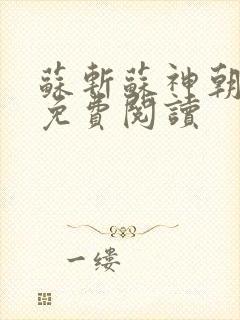 蘇斬蘇神朝
免費閱讀
一缕